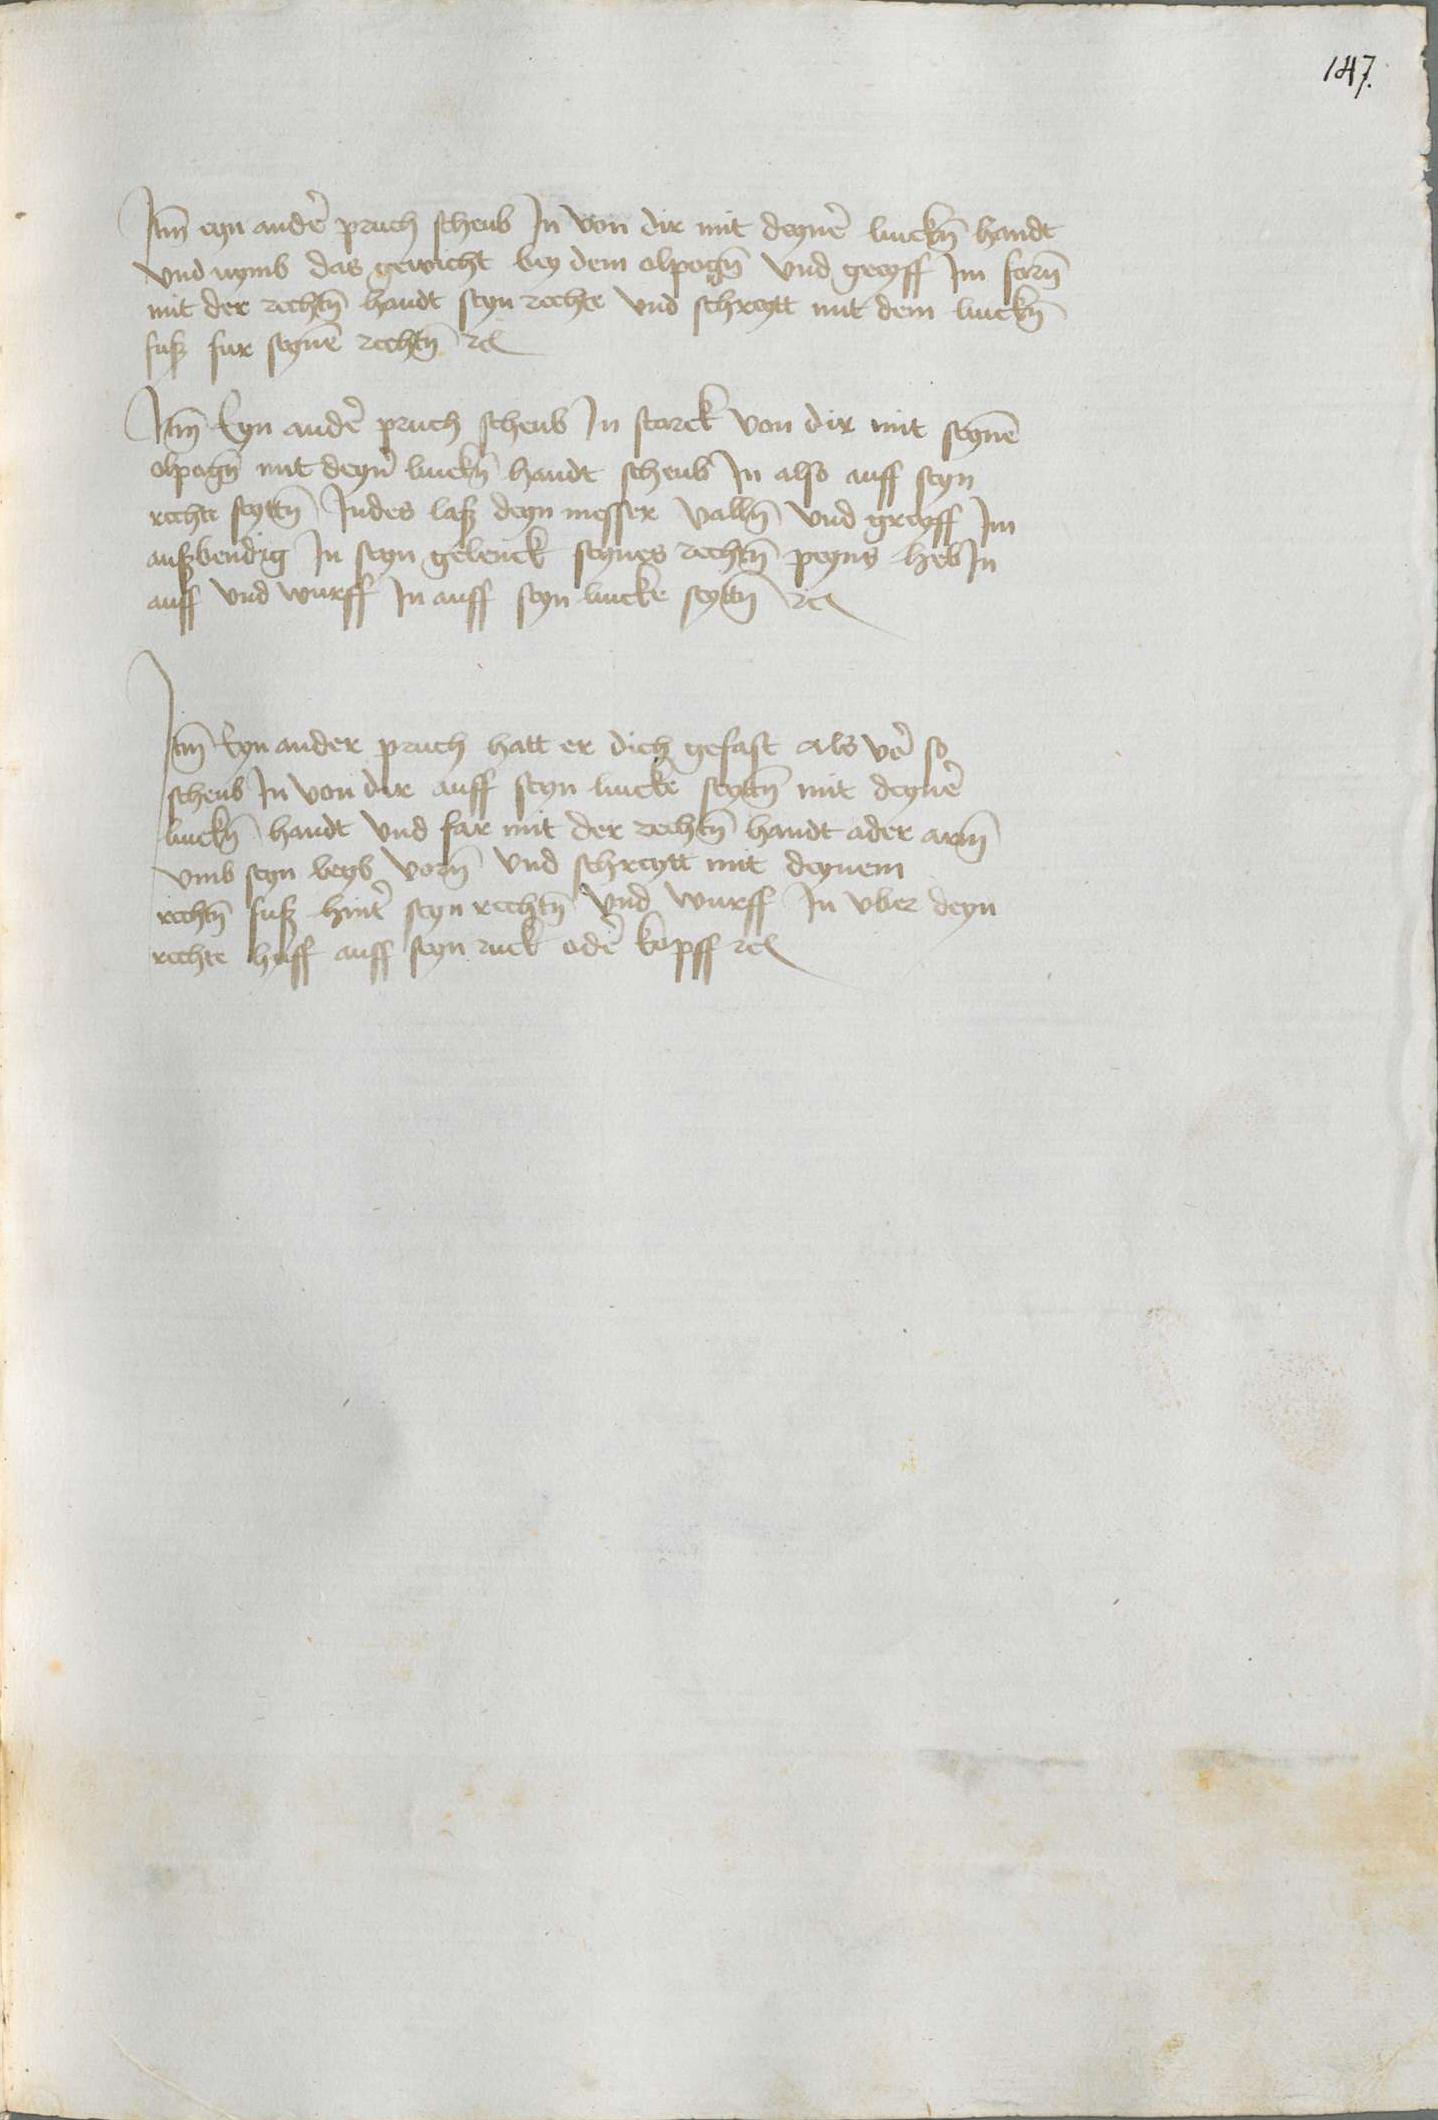 147.
Itm̄ eyn ander̄ pruch scheub In von dir mit deyner̄ linckn̄ handt
vnd nymb das gewicht bey dem olpogn̄ vnd greyff Im forn̄
mit der rechtn̄ handt seyn rechte vnd schreytt mit dem linckn̄
fuß fur seynē rechtn̄ ꝛc
Itm̄ Eyn ander̄ pruch scheub In starck von dir mit seynē
olpogn̄ mit deyn̄ linckn̄ handt scheub In also auff seyn
rechte seyttn̄ Indes laß deyn messer valln̄ vnd greyff Im
außbendig In seyn gelenck seynes rechtn̄ peyns heb In
auff vnd wurff In auff seyn lincke seyttn̄ ꝛc
Itm̄ Eyn ander pruch hatt er dich gefast als ver̄ so
scheub In von dir auff seyn lincke seyttn̄ mit deyner̄
linckn̄ handt vnd far mit der rechtn̄ handt ader arm̄
vmb seyn leyb vorn̄ vnd schreytt mit deynem
rechtn̄ fuß hintr̄ seyn rechtn̄ vnd wurff In vber deyn
rechte huff auff seyn ruck oder̄ kopff ꝛc